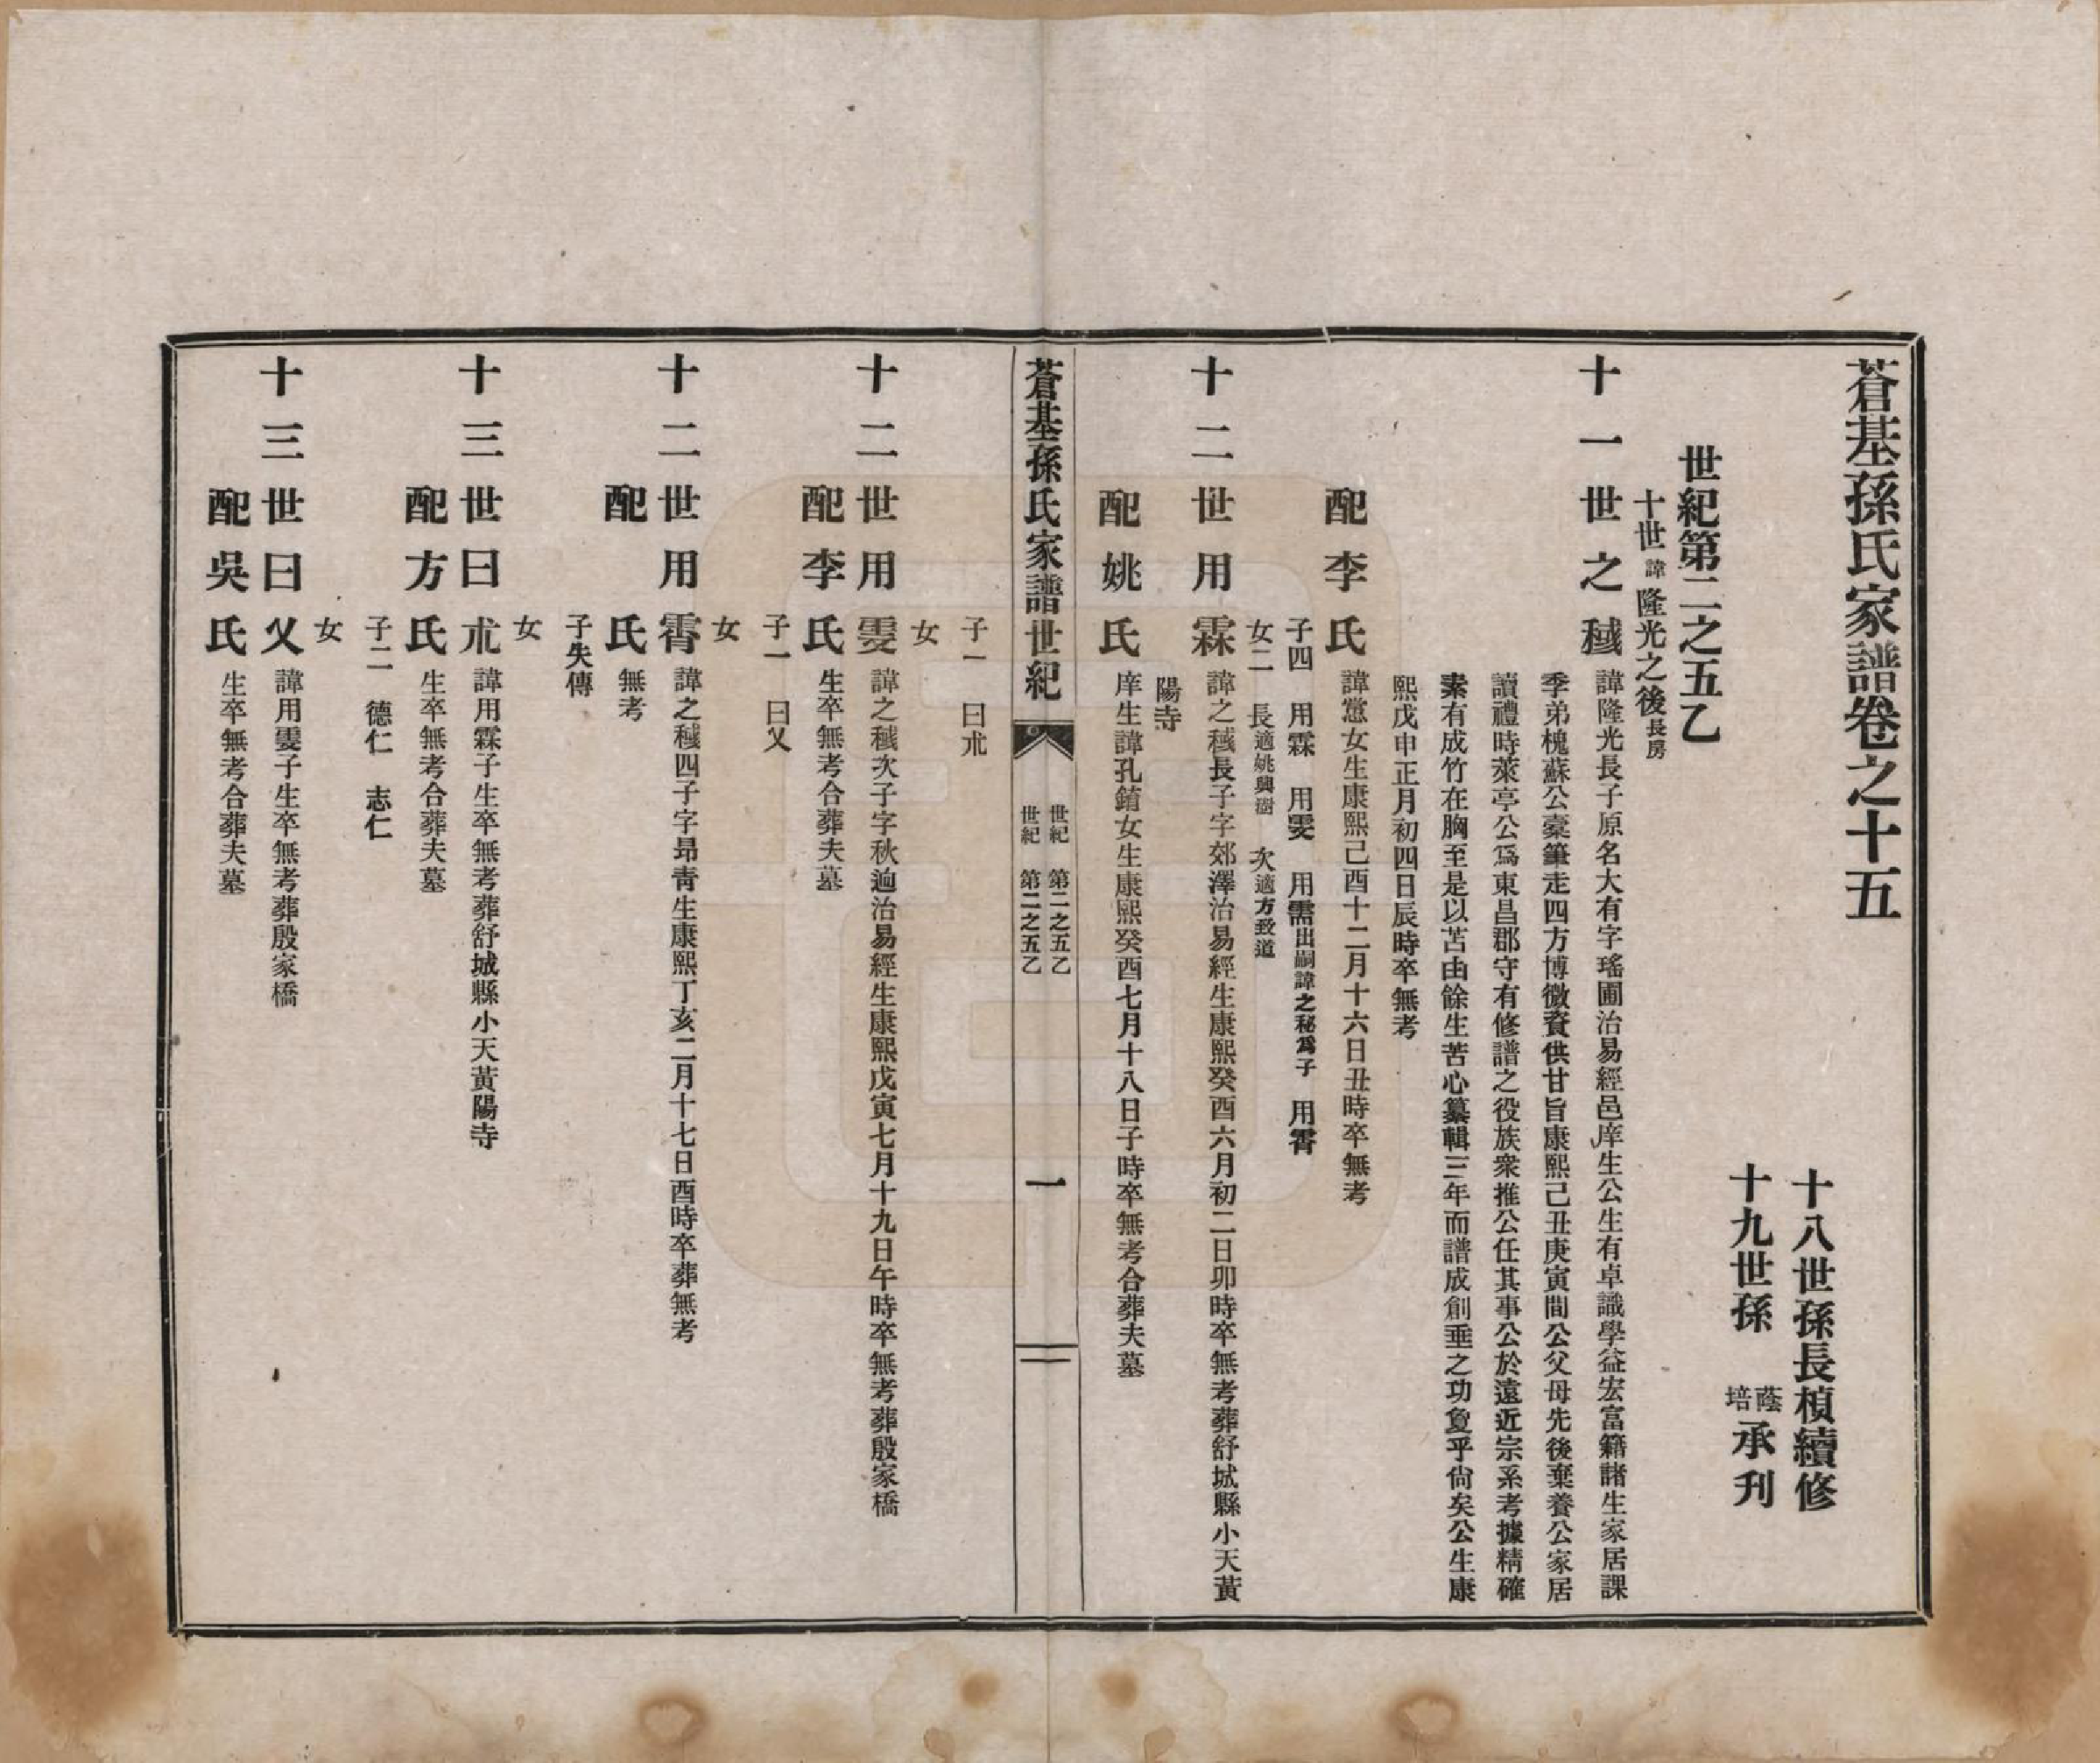 蒼基孫氏家譜卷之十五
十八世孫長楨續修
十九世孫 蔭培 承刊
世紀第二之五乙
十世諱隆光之後長房
十一世之㰅 諱隆光長子原名大有字瑤圃治易經邑庠生公生有卓識學益宏富籍諸生家居課
季弟槐蘇公橐筆走四方博微資供甘旨康熙己丑庚寅間公父母先後棄養公家居
讀禮時萊亭公爲東昌郡守有修譜之役族衆推公任其事公於遠近宗系考據精確
素有成竹在胸至是以苫甴餘生苦心纂輯三年而譜成創垂之功敻乎尙矣公生康
熙戊申正月初四日辰時卒無考
配李氏 諱 女生康熙己酉十二月十六日丑時卒無考
子四 用霖 用雯 用需出嗣諱之秘爲子 用霄
女二 長適姚興澍 次適方致道
十二世用霖 諱之 長子字郊澤治易經生康熙癸酉六月初二日卯時卒無考葬舒城縣小天黃
陽寺
配姚氏 庠生諱孔錥女生康熙癸酉七月十八日子時卒無考合葬夫墓
蒼基孫氏家譜世紀
世紀 第二之五乙
世紀 第二之五乙
一
子一 曰朮
女
十二世用雯 諱之 次子字秋逈治易經生康熙戊寅七月十九日午時卒無考葬殷家橋
配李氏 生卒無考合葬夫墓
子一 曰乂
女
十二世用霄 諱之 四子字昻靑生康熙丁亥二月十七日酉時卒葬無考
配 氏 無考
子失傳
女
十三世曰朮 諱用霖子生卒無考葬舒城縣小天黃陽寺
配方氏 生卒無考合葬夫墓
子二 德仁 志仁
女
十三世曰乂 諱用雯子生卒無考葬殷家橋
配吳氏 生卒無考合葬夫墓